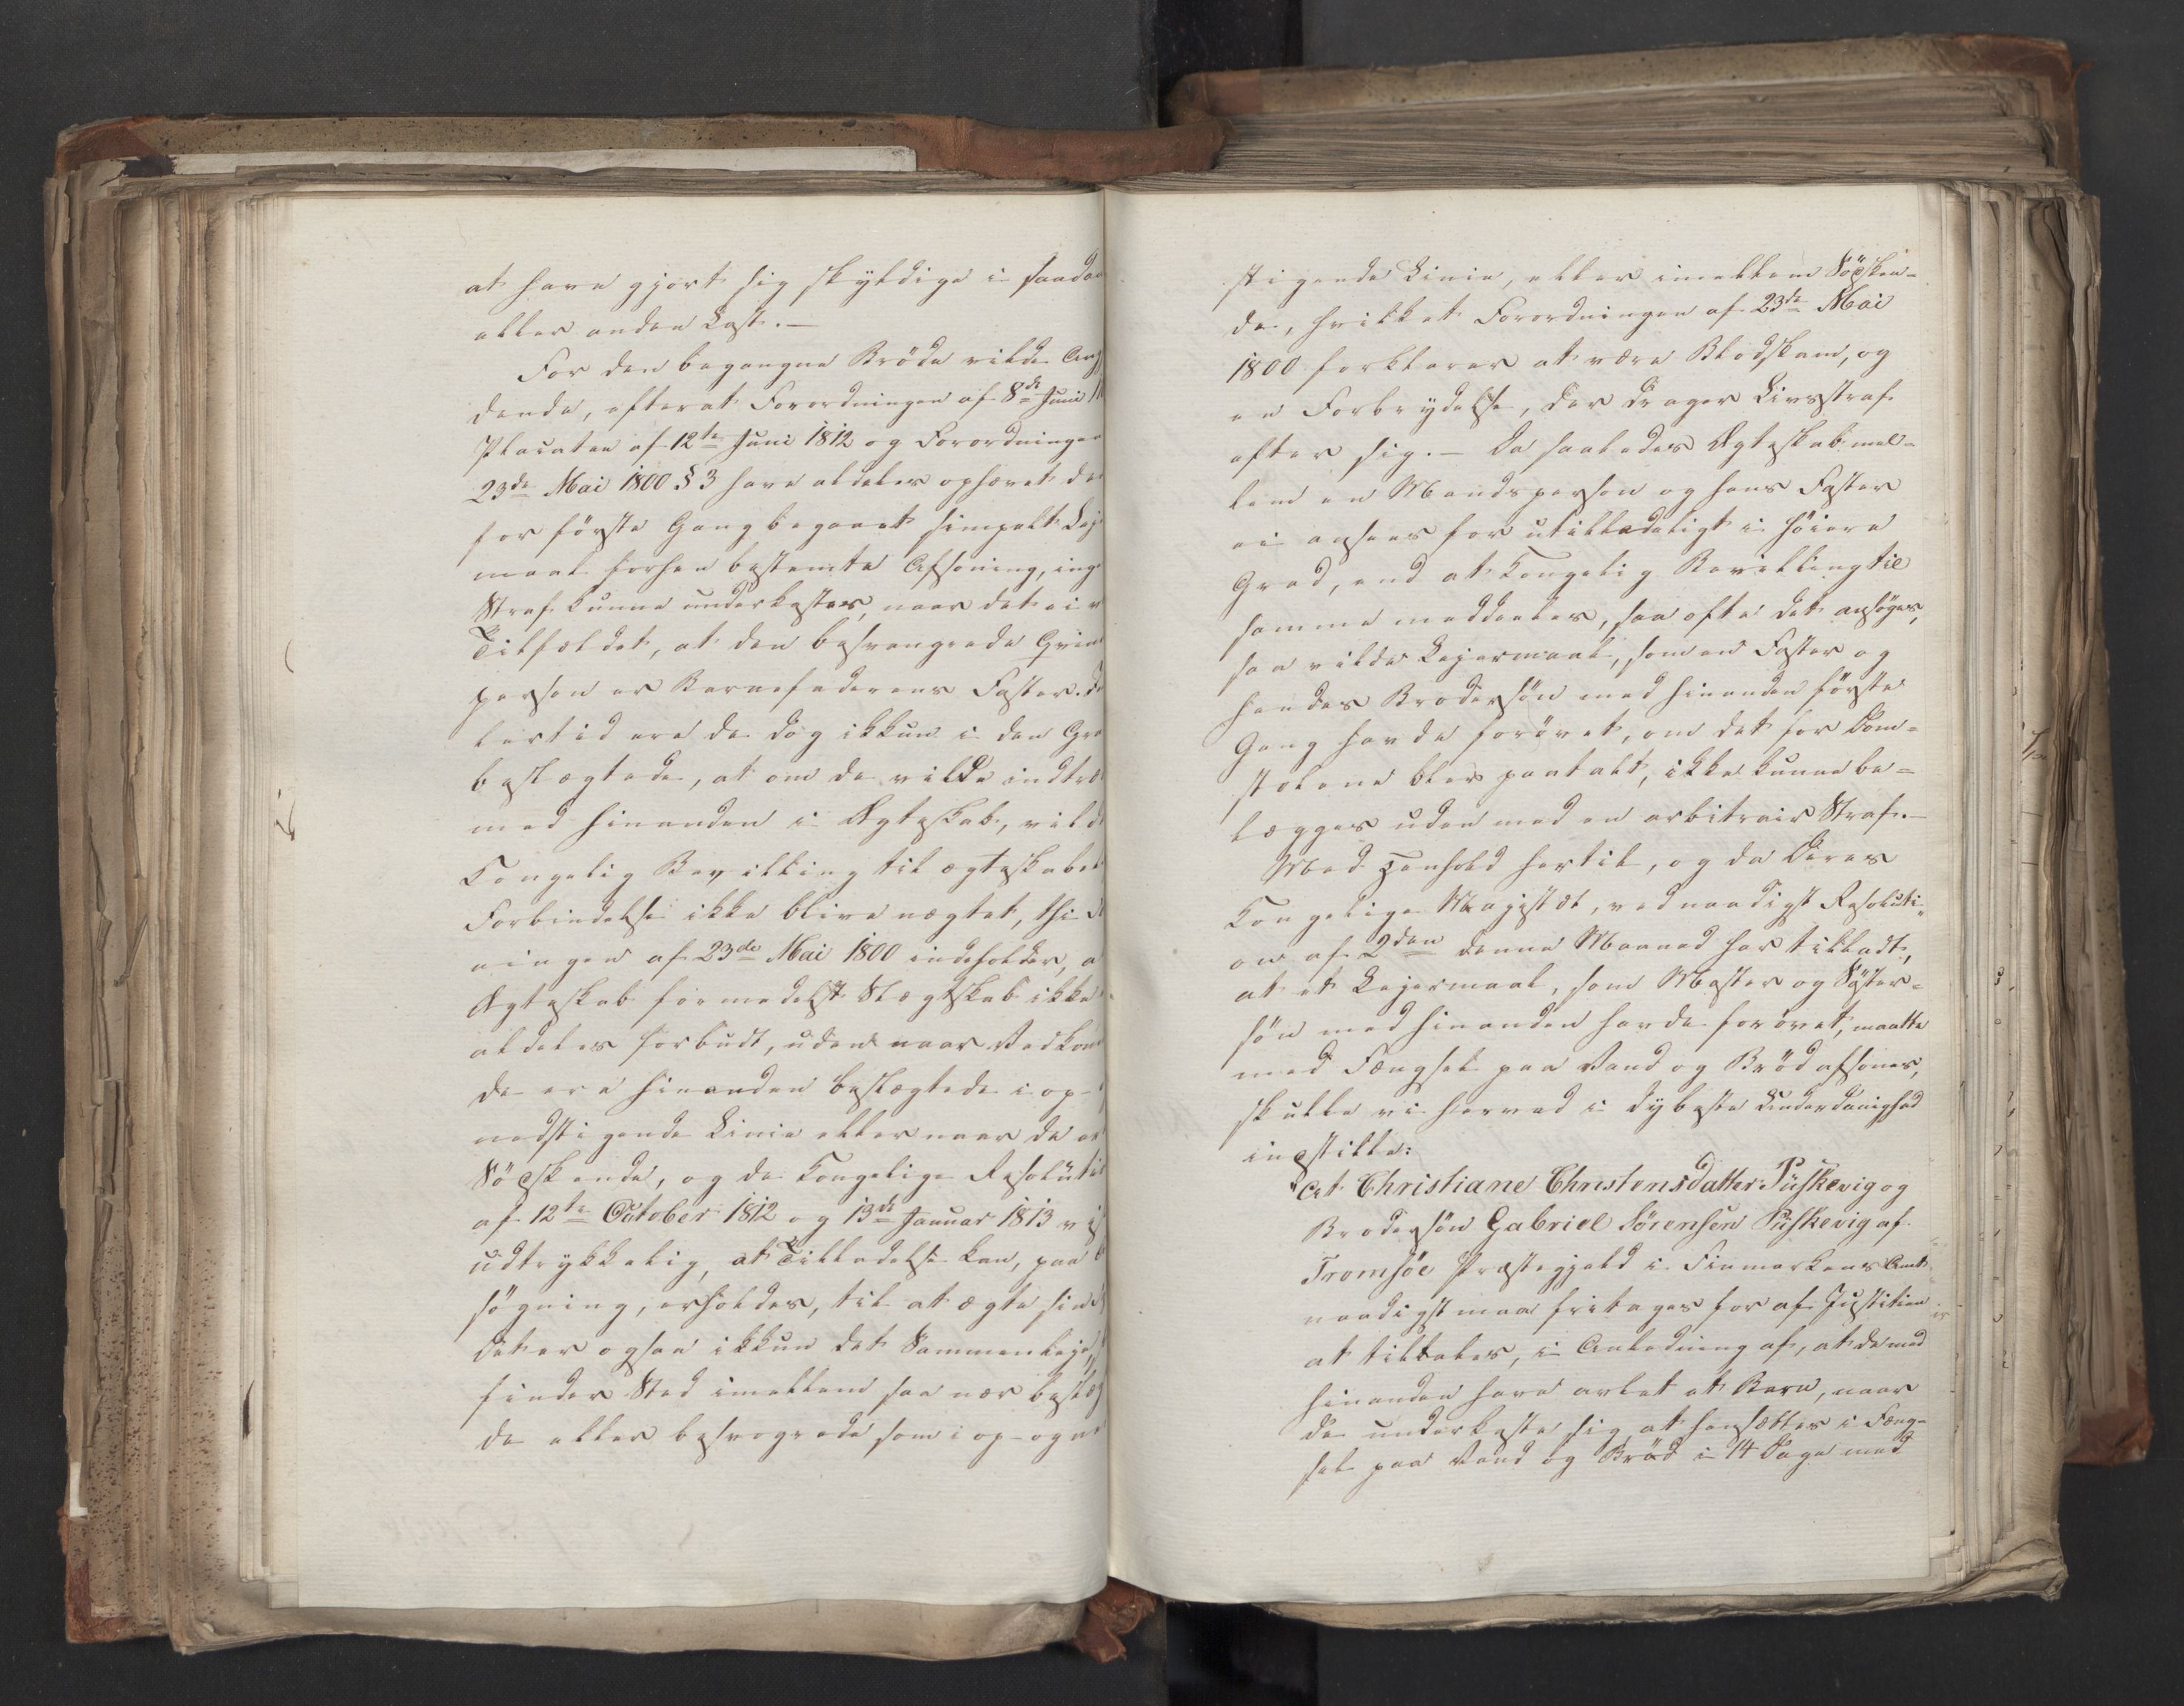 at have gjort sig skyldige i saadan
eller anden Last. –
For den begangne Bröde vilde Ang
dende, efterat Forordningen af 8de Junii 1
Placaten af 12te Juni 1812 og Forordningen
23de Mai 1800 § 3 have aldeles ophævet den
for förste Gang begaaet simpelt Lej
maal forhen bestemte Afsoning, inge
Straf kunne underkastes, naar det ei v
Tilfældet, at den besvangrede Qvin
person er Barnefaderens Faster. 
lertid ere de dog ikkun i den Gra
beslægtede, at om de vilde indtræ
med hinanden i Ægteskab, vild
Kongelig Bevilling til ægteskabel
Forbindelse ikke blive nægtet, thi 
ningen af 23de Mai 1800 indeholder, a
Ægteskab formedelst Slægtskab ikke
aldeles forbudt, uden naar Vedkom
de ere hinanden beslægtede i op-
nedstigende Linie eller naar de er
Södskende, og de Kongelige Resoluti
af 12te October 1812 og 13de Januar 1813 vis
udtrykkelig, at Tilladelse kan, paa 
søgning, erholdes, til at ægte sin
det er ogsaa ikkun det Sammenleje,
finder Sted imellem saa nær beslæg
de eller besvogrede som i op- og ne
stigende Linie, eller imellem Södsken-
de, hvilket Forordningen af 23de Mai
1800 forklarer at være Blodskam, og
en Forbrydelse, der drager Livsstraf
efter sig. – Da saaledes Ægteskab mel-
lem en Mandsperson og hans Faster
ei ansees for utilladeligt i höiere
Grad, end at Kongelig Bevilling til
samme meddeles, saa ofte det ansøges,
saa vilde Lejermaal, som en Faster og
hendes Brodersön med hinanden förste
Gang havde forövet, om det for Dom-
stolene blev paatalt, ikke kunne be-
lægges uden med en arbitrair Straf. –
Med Henhold hertil, og da Deres
Kongelige Majestæt, ved naadigst Resoluti-
on af 2den denne Maaned har tilladt,
at et Lejermaal, som Moster og Söster-
sön med hinanden havde forövet, maatte
med Fængsel paa Vand og Bröd afsones,
skulle vi herved i dybeste Underdanighed
indstille:
At Christiane Christensdatter Püskevig og
Brodersön Gabriel Sörensen Püskevig af
Tromsöe Præstegjeld i Finmarkens Amt
naadigst maa fritages for af Justitien
at tiltales, i Anledning af, at de med
hinanden have avlet et Barn, naar
de underkaste sig, at hensættes i Fæng-
sel paa Vand og Bröd i 14 Dage med